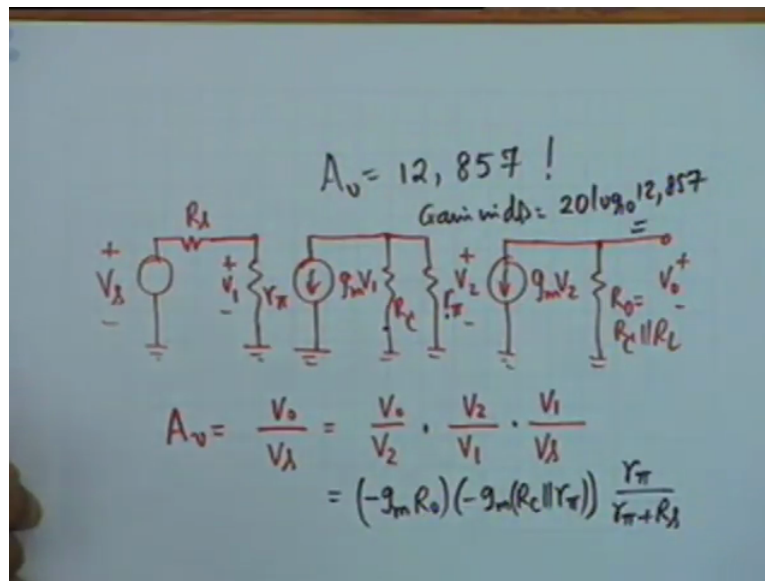 A_v = 12,857 !
Gain in dB = 20 log₁₀ 12,857
=
R_s
+ V_s -
+ V_1 -
r_π
g_m V_1
R_C
r_π
+ V_2 -
g_m V_2
R_0 =
R_C || R_L
V_0 + -
A_v = V_0 / V_s = V_0 / V_2 · V_2 / V_1 · V_1 / V_s
= (-g_m R_0) (-g_m (R_C || r_π)) r_π / (r_π + R_s)